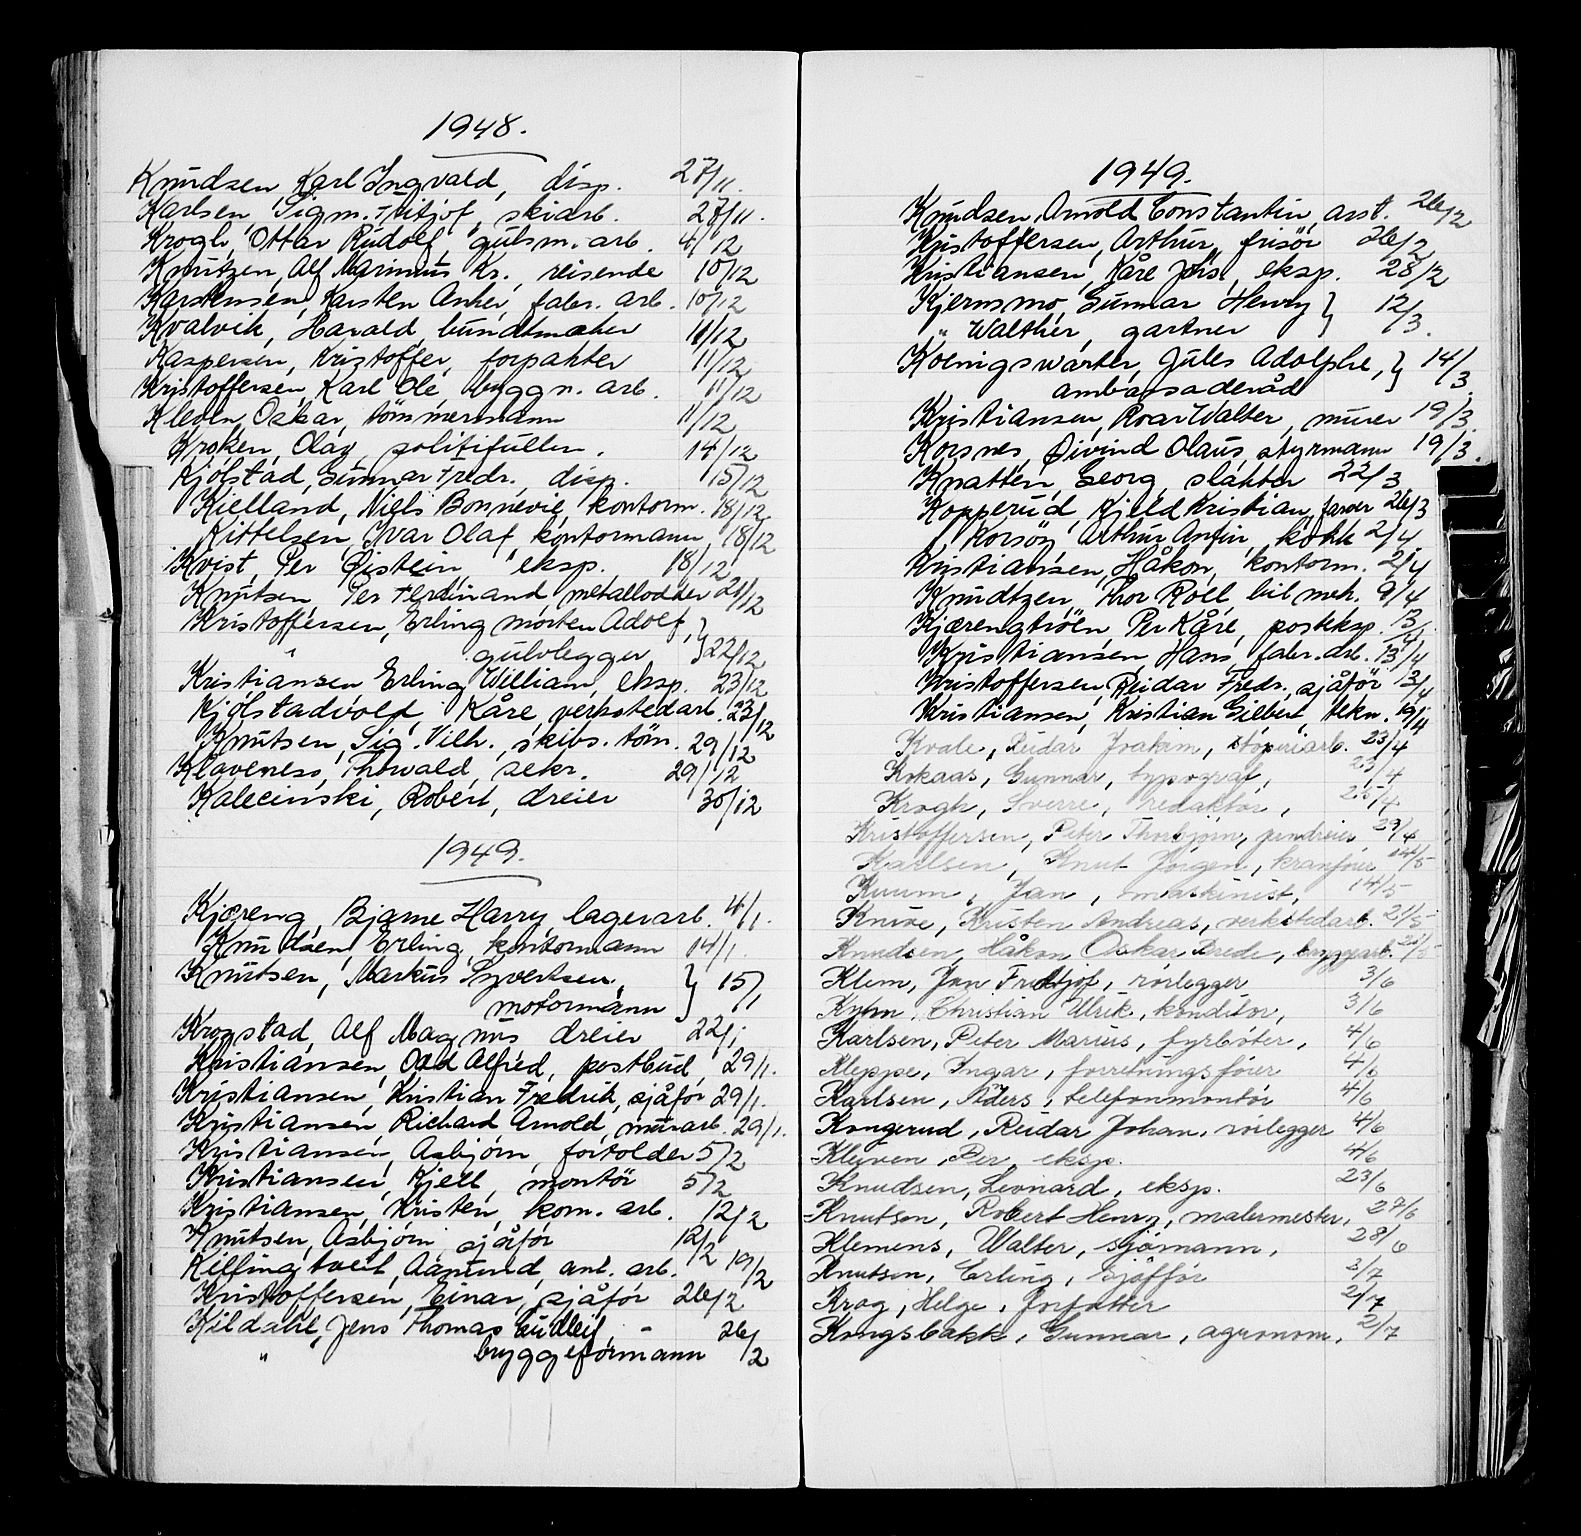 1948.
Knudsen, Karl Ingvald, disp. 27/11.
Karlsen, Sigm. Fritjof, skiarb. 27/11.
Krogh, Ottar Rudolf, gulsm. arb. 4/12
Knutzen, Alf Marinius Kr., reisende 10/12
Karstensen, Karsten Anker, fabr. arb. 10/12
Kvalvik, Harald, buntmaker 11/12
Kaspersen, Kristoffer, forpakter 11/12
Kristoffersen, Karl Ole, byggn. arb. 11/12
Kleven, Oskar, tømmermann 11/12
Kroken, Olav, politifullm. 14/12
Kjølstad, Gunnar Fredr., disp. 15/12
Kielland, Niels Bonnevie, kontorm. 18/12
Kittelsen, Ivar Olaf, kontormann 18/12
Kvist, Per Øistein, eksp. 18/12
Knutsen, Per Ferdinand, metallodder 21/12
Kristoffersen, Erling Morten Adolf, }
" gulvlegger } 22/12
Kristiansen Erling William, eksp. 23/12
Kjølstadvold, Kåre, verkstedarb. 23/12
Knutsen, Sig. Vilh., skibs. tøm. 29/12
Klaveness, Thorvald, sekr. 29/12
Kalecinski, Robert, dreier 30/12
1949.
Kjæreng, Bjarne Harry, lagerarb. 4/1.
Knudsen, Erling, kontormann 14/1.
Knutsen, Markus Syvertsen, }
motormann } 15/1
Krogstad, Alf Magnus dreier 22/1
Kristiansen, Odd Alfred, postbud, 29/1.
Kristiansen, Kristian Fredrik, sjåfør 29/1.
Kristiansen, Richard Arnold, murarb. 29/1.
Kristiansen, Asbjørn, fortolder 5/2
Kristiansen, Kjell, montør 5/2
Kristiansen, Kristen, kom. arb. 12/2
Knutsen, Asbjørn, sjåfør 12/2
Kilfingtveit, Aamund, anl. arb. 12 19/2
Kristoffersen, Einar, sjåfør 26/2
Kildahl, Jens Thomas Gudleif, - 26/2
" bryggeformann
1949.
Knudsen, Arnold Constantin, arst. 26/2
Kristoffersen, Arthur, frisør 26/2
Kristiansen, Kåre Jens, eksp. 28/2
Kjernsmo, Gunnar Henry } 12/3.
" Walther, gartner }
Koenigswarter, Jules Adolphe, } 14/3
ambassaderåd
Kristiansen, Roar Walter, murer 19/3.
Korsnes, Øivind Olaus, styrmann 19/3.
Knatten, Georg, slakter 22/3
Kopperud, Kjeld Kristian, farver 26/3
Korsøy, Arthur Anfin, kokk 2/4
Kristiansen, Håkon, kontorm. 2/4
Knudtzen, Thor Roll, bil mek. 9/4
Kjærengtrøen, Per Kåre, posteksp. 13/4
Kristiansen, Hans, fabr. arb. 13/4
Kristoffersen, Reidar Fredr., sjåfør 13/4
Kristiansen, Kristian Gilbert, tekn. 19/4
Kvale, Reidar Joakim, støperiarb. 23/4
Kokaas, Gunnar, typograf, 23/4
Krogh, Sverre, redaktør, 25/4
Kristoffersen, Peter Thorbjørn, jerndreier 29/4
Karlsen, Knut Jørgen, kranfører 14/5
Kuum, Jan, maskinist, 14/5
Knive, Kristen Andreas, verkstedarb. 21/5
Knudsen, Håkon Oskar Brede, byggarb.
Klem, Jan Fredtjof, rørlegger 3/6
Kyhn, Christian Ulrik, konditor, 3/6
Karlsen, Peter Marius, fyrbøter, 4/6
Kleppe, Ingar, forretningsfører 4/6
Karlsen, Peders, telefonmontør 4/6
Kongerud, Reidar Johan, rørlegger 4/6
Kleiven, Per, eksp. 4/6
Knudsen, Leonard, eksp. 23/6
Knutsen, Robert Henry, malermester, 27/6
Klemens, Walter, sjømann, 28/6
Knutsen, Erling, sjåfør 3/7
Krag, Helge, forfatter 2/7
Kongsbakk, Gunnar, agronom, 2/7